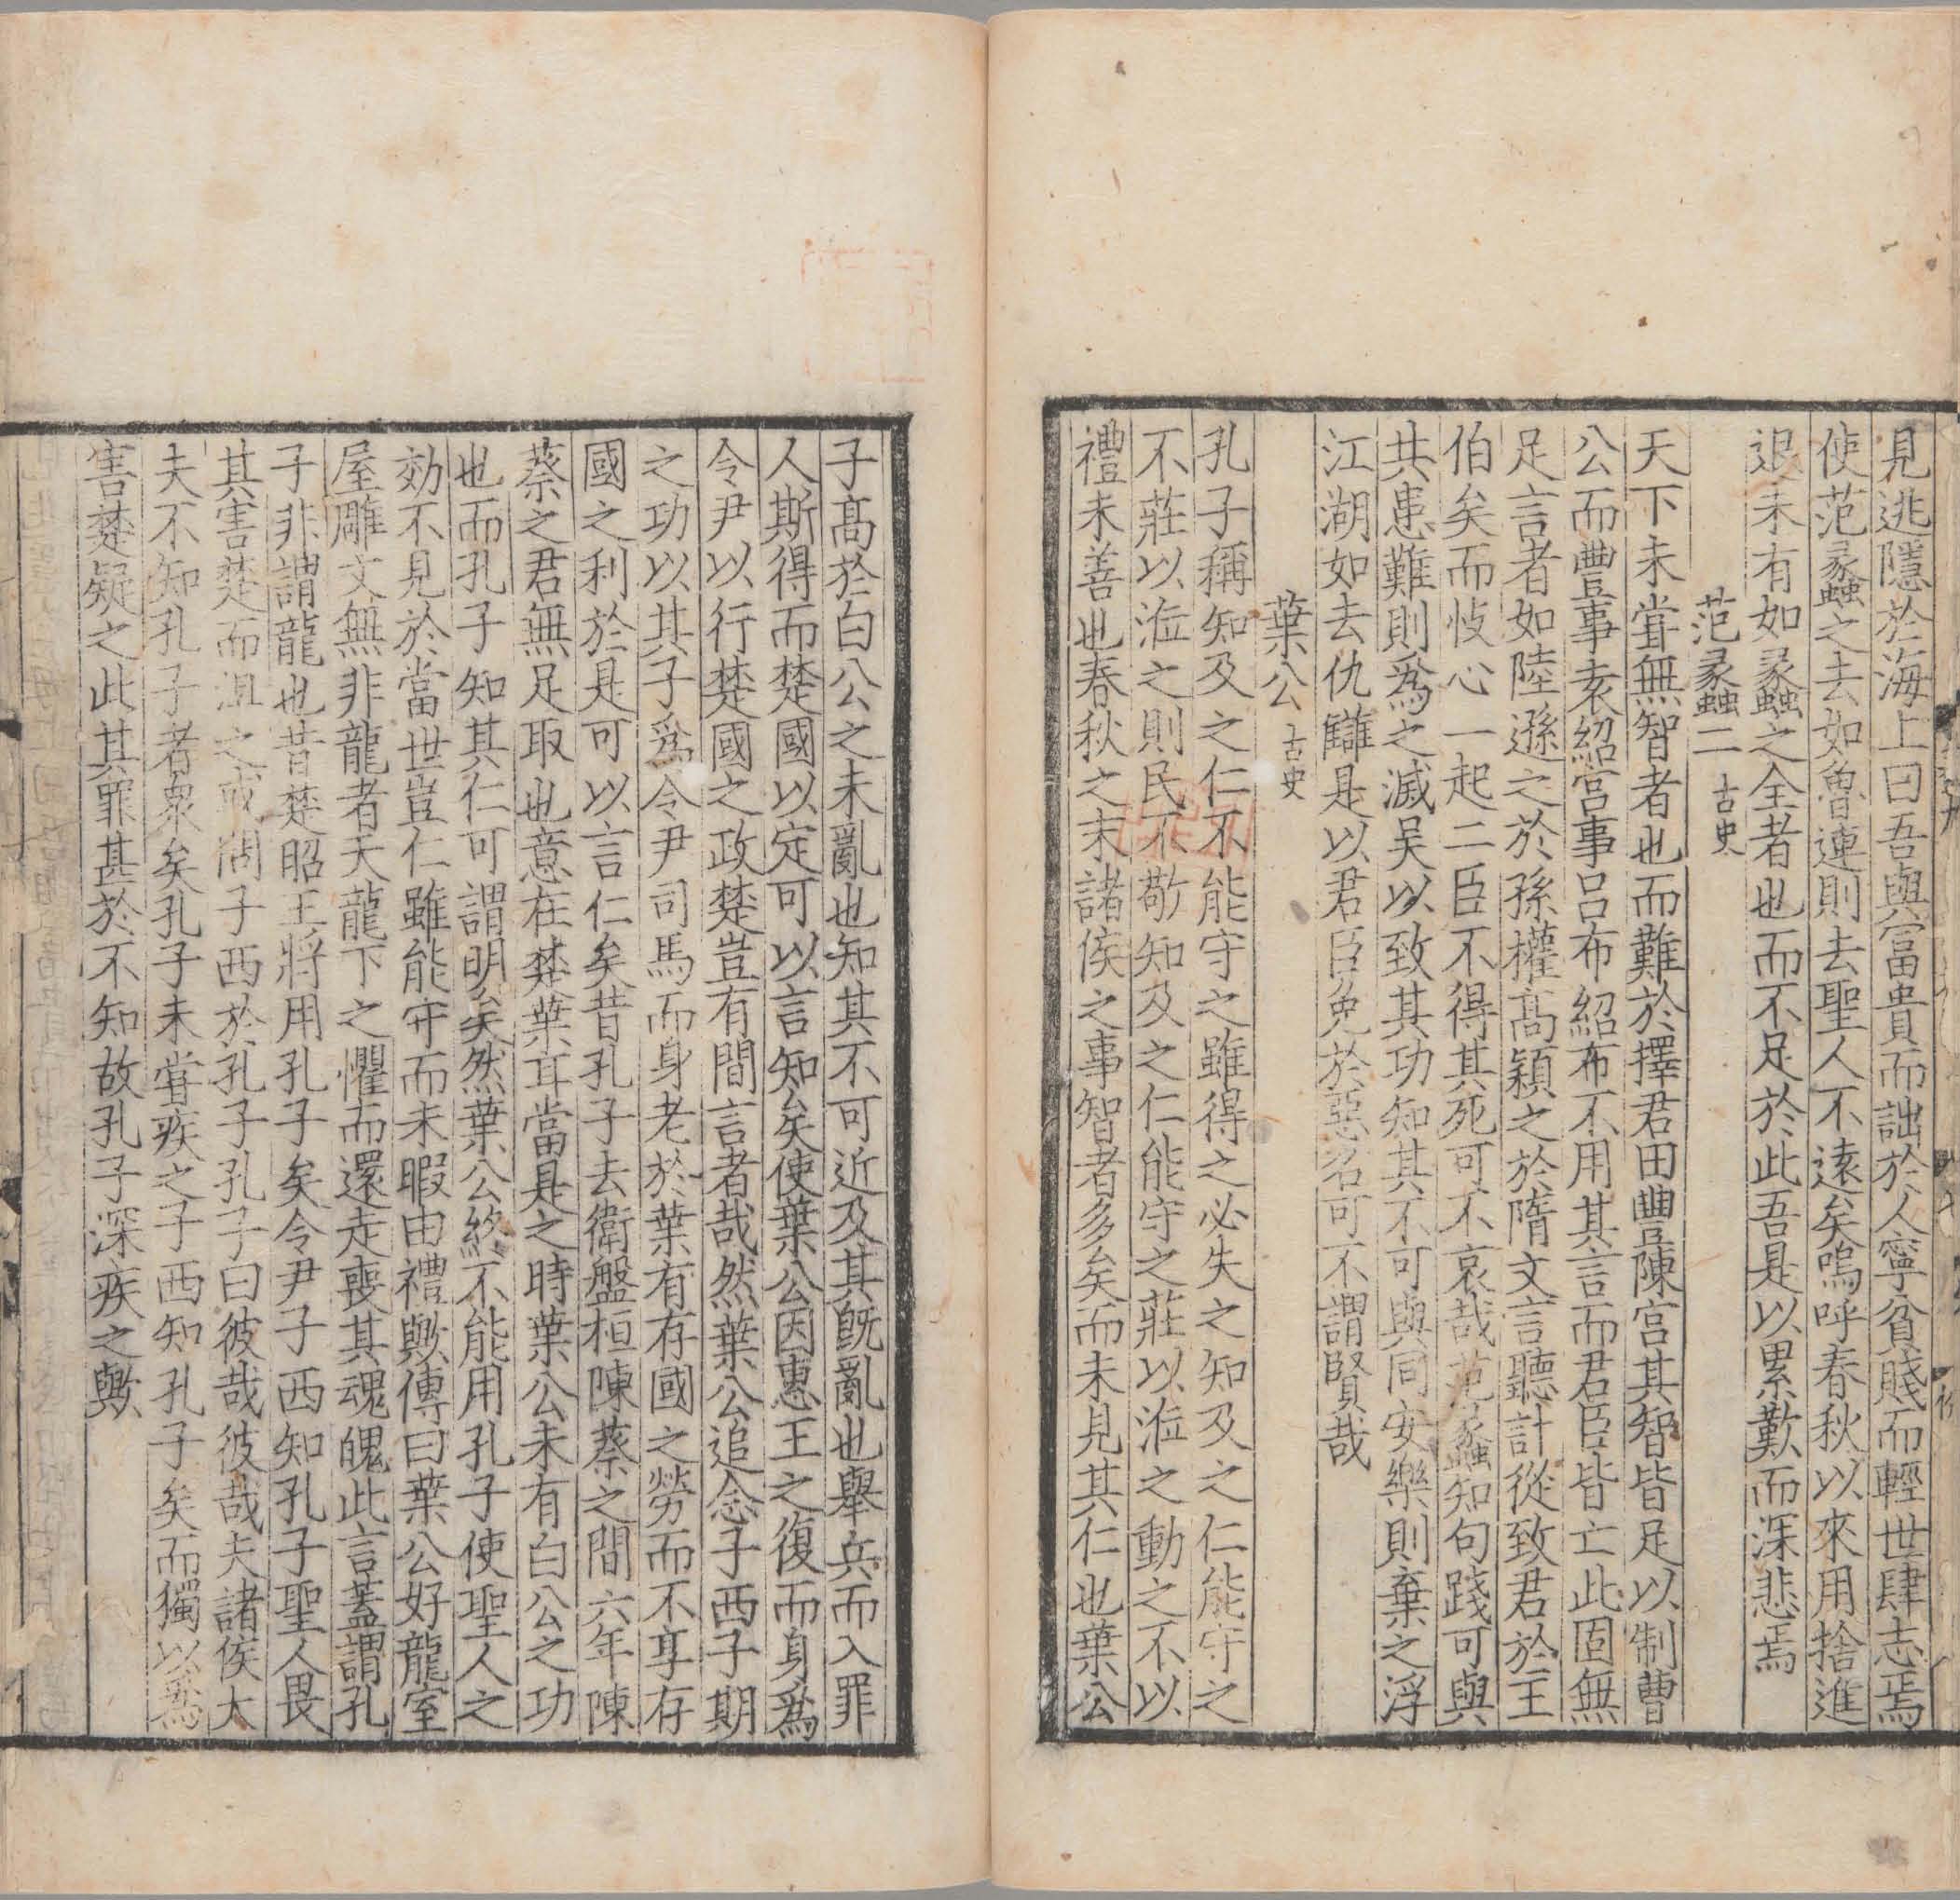 見逃隱於海上曰吾與富貴而詘於人寧貧賤而輕世肆志焉
使范蠡之去如魯連則去聖人不遠矣嗚呼春秋以來用捨進
退未有如蠡之全者也而不足於此吾是以累歎而深悲焉
范蠡二 古史
天下未甞無智者也而難於擇君田豐陳宮其智皆足以制曹
公而豐事袁紹宮事呂布紹布不用其言而君臣皆亡此固無
足言者如陸遜之於孫權高穎之於隋文言聽計從致君於王
伯矣而忮心一起二臣不得其死可不哀哉范蠡知句踐可與
共患難則爲之滅吳以致其功知其不可與同安樂則棄之浮
江湖如去仇讎是以君臣免於惡名可不謂賢哉
葉公 古史
孔子稱知及之仁不能守之雖得之必失之知及之仁能守之
不莊以涖之則民不敬知及之仁能守之莊以涖之動之不以
禮未善也春秋之末諸侯之事智者多矣而未見其仁也葉公
子高於白公之未亂也知其不可近及其旣亂也舉兵而入罪
人斯得而楚國以定可以言知矣使葉公因惠王之復而身爲
令尹以行楚國之政楚豈有間言者哉然葉公追念子西子期
之功以其子爲令尹司馬而身老於葉有存國之勞而不享存
國之利於是可以言仁矣昔孔子去衛盤桓陳蔡之間六年陳
蔡之君無足取也意在楚葉耳當是之時葉公未有白公之功
也而孔子知其仁可謂明矣然葉公終不能用孔子使聖人之
効不見於當世豈仁雖能守而未暇由禮歟傳曰葉公好龍室
屋雕文無非龍者天龍下之懼而還走喪其魂魄此言蓋謂孔
子非謂龍也昔楚昭王將用孔子矣令尹子西知孔子聖人畏
其害楚而沮之或問子西於孔子孔子曰彼哉彼哉夫諸侯大
夫不知孔子者衆矣孔子未甞疾之子西知孔子矣而獨以爲
害楚疑之此其罪甚於不知故孔子深疾之歟